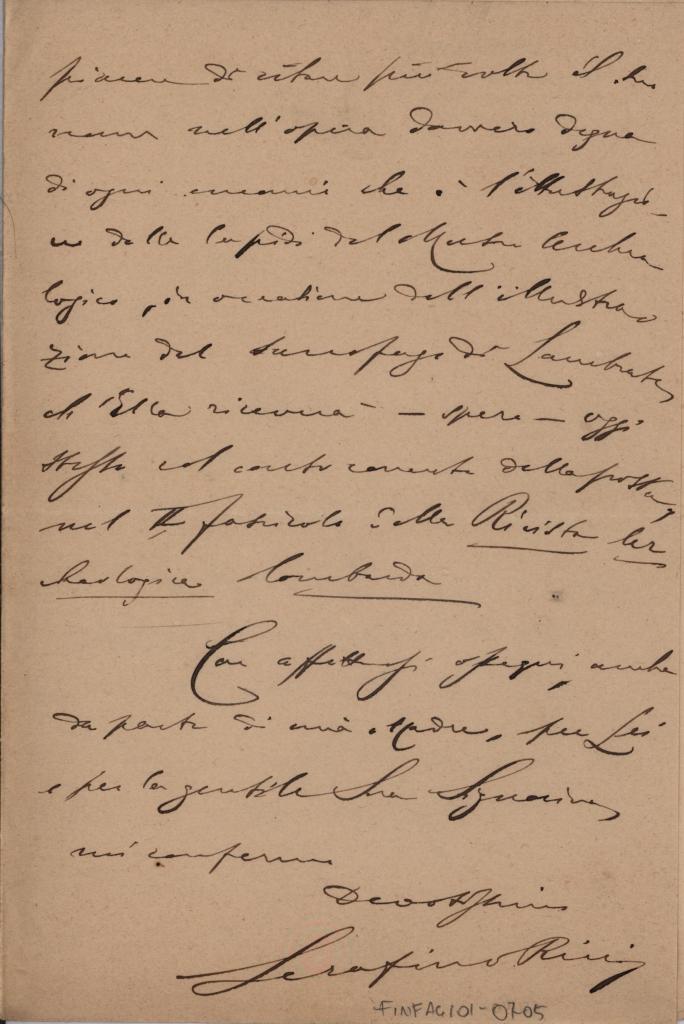 piacere di citare più volte il Suo
nome nell'opera davvero degna
di ogni encomio che è l'illustrazio-
ne delle lapidi del Museo Archeo
logico, in occasione dell'illustra
zione del sarcofago di Lambrate,
ch'Ella riceverà — spero — oggi
stesso col corriere della posta,
nel II fascicolo della Rivista Ar
cheologica Lombarda
Con affettuosi ossequi, anche
da parte di mia Madre, per Lei
e per la gentile Sua Signorina
mi confermo
Devotissimo
Serafino Ricci
FINFAG101-0705